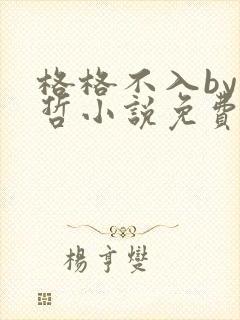 格格不入by
哲小説免費
楊亨燮